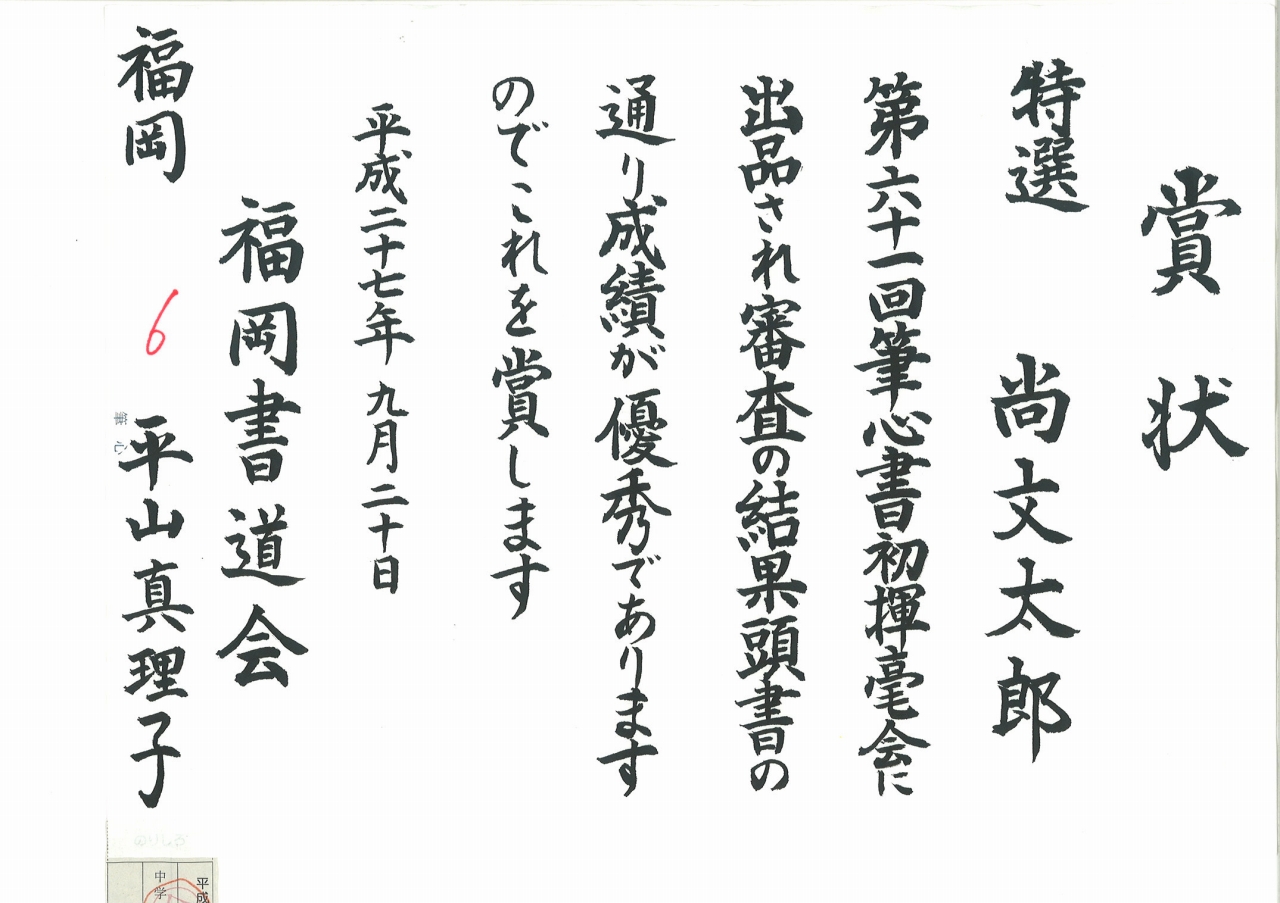 賞状
特選 尚文太郎
第六十一回筆心書初揮毫会に
出品され審査の結果頭書の
通り成績が優秀であります
のでこれを賞します
平成二十七年九月二十日
福岡書道会
福岡 6 平山真理子
筆心
のりしろ
平成
中学